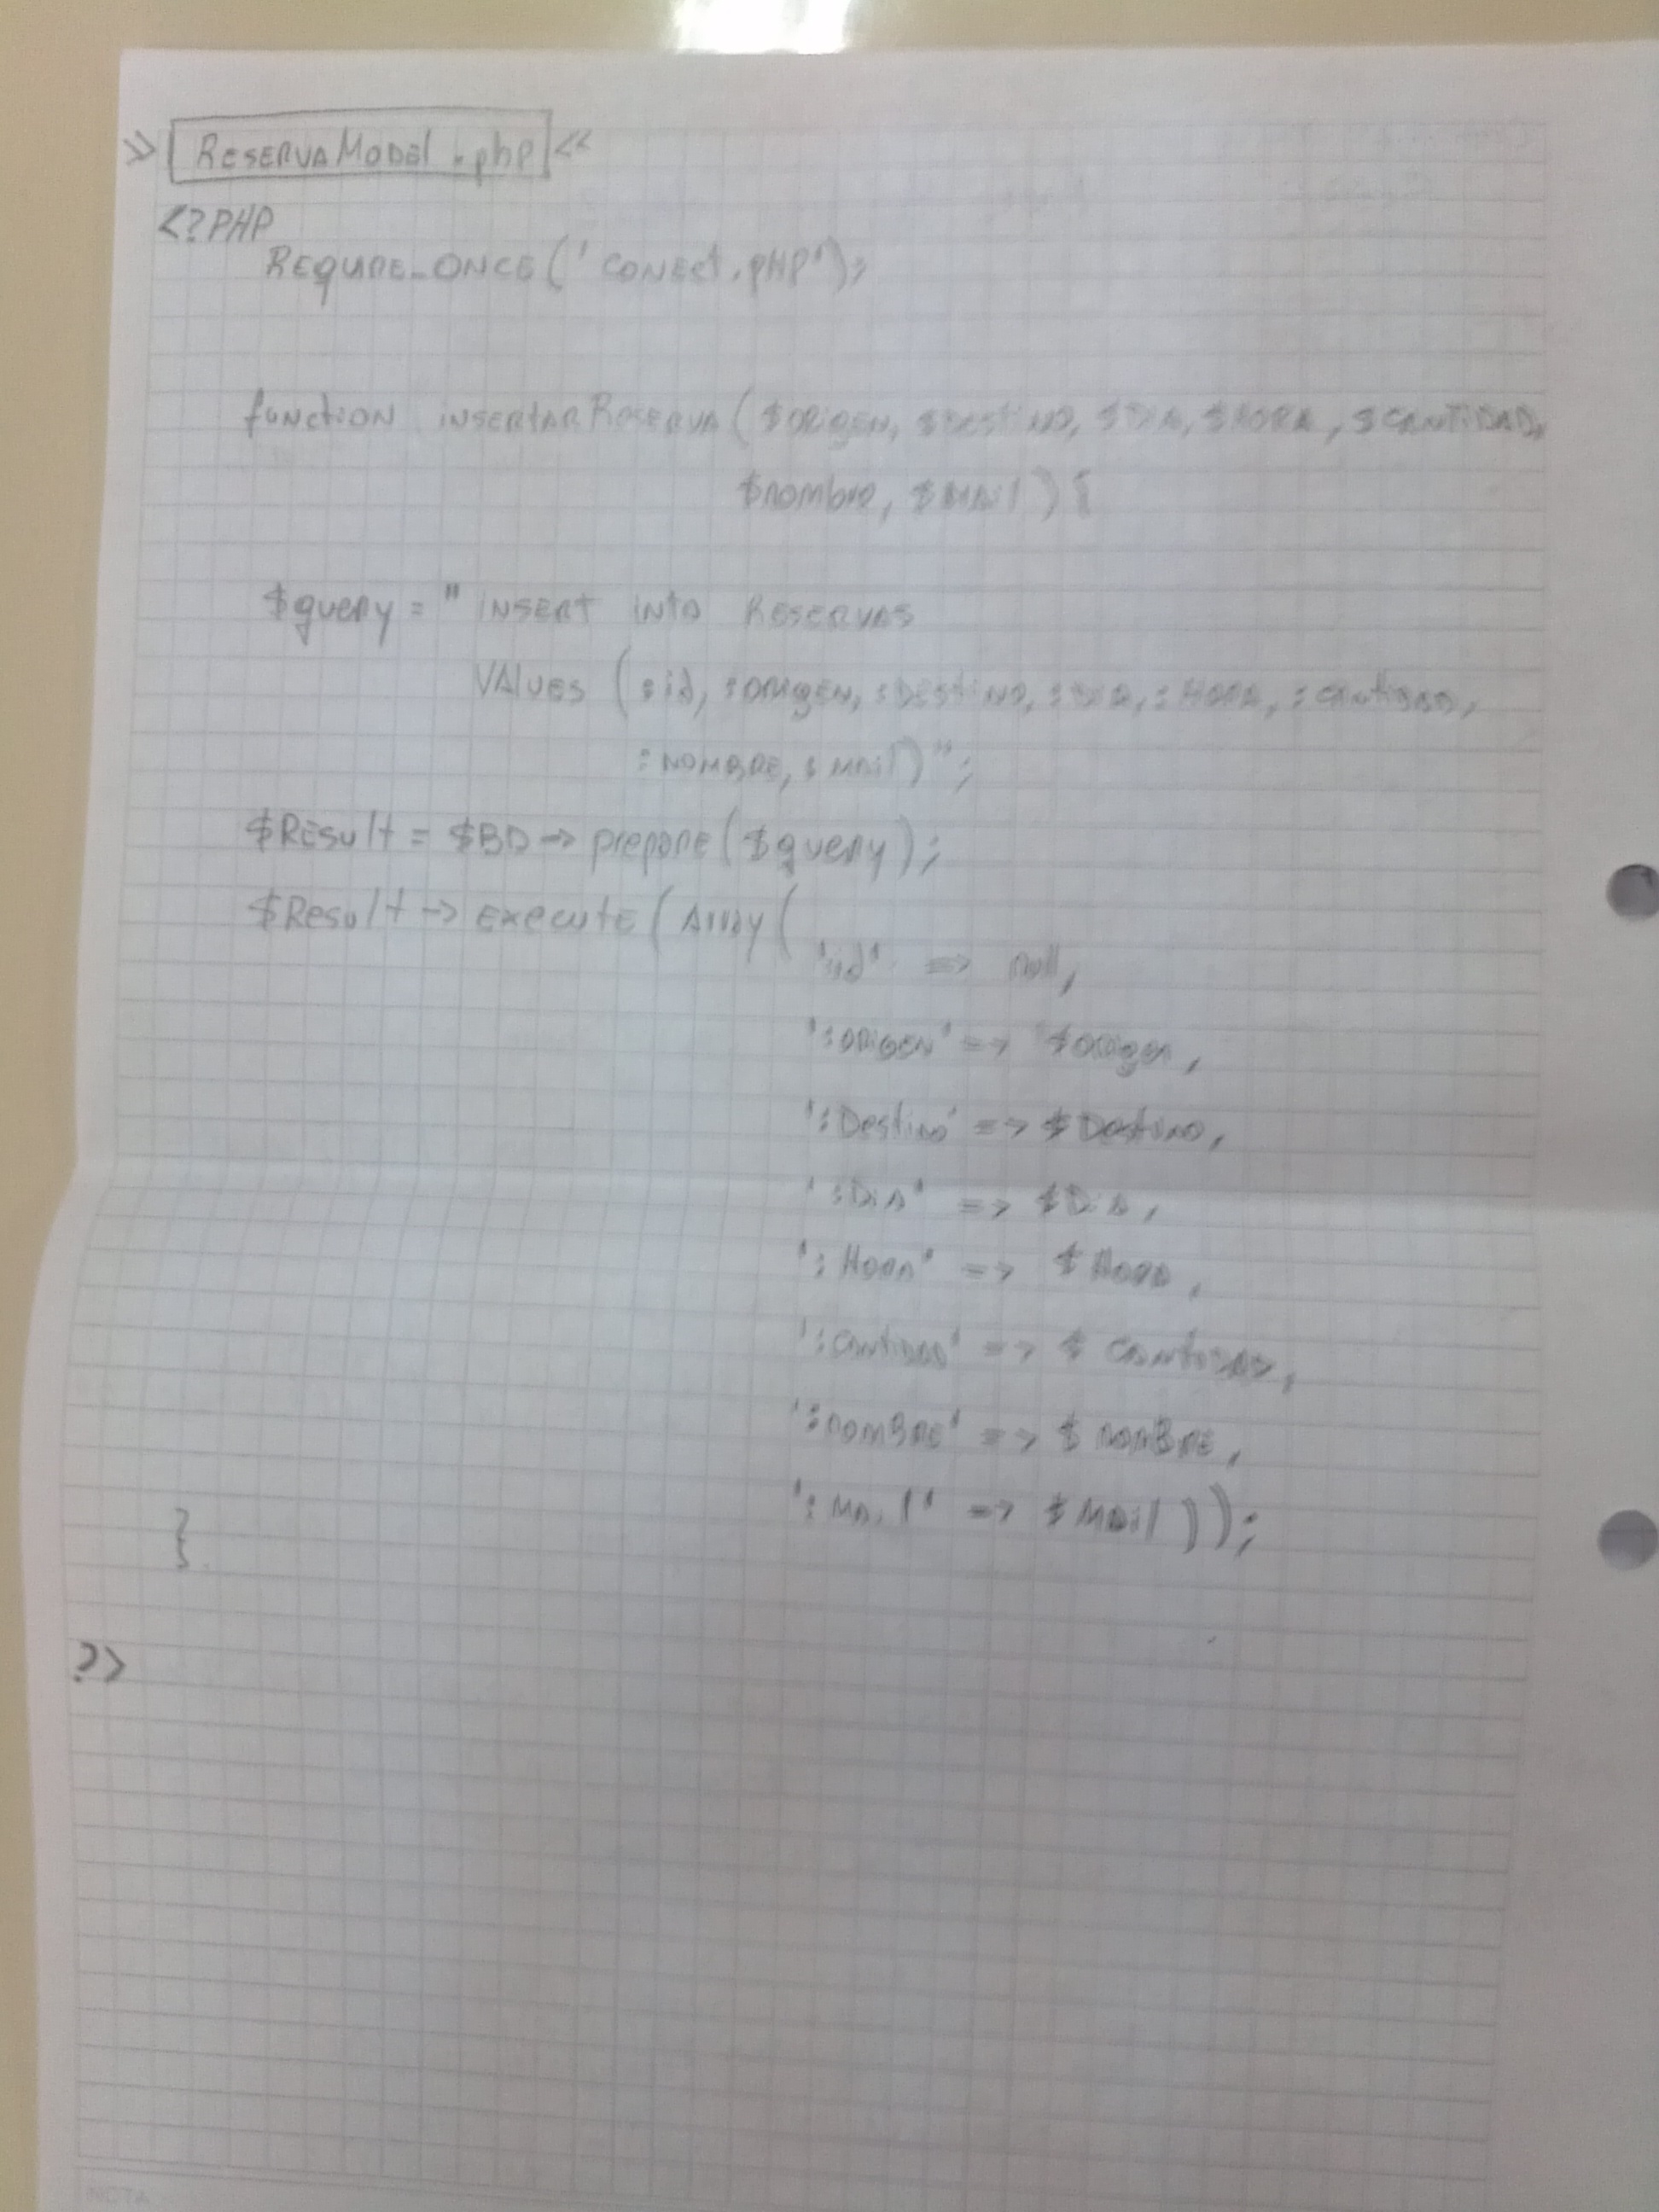 >> ReservaModel.php <<
<?PHP
REQUIRE_ONCE('conect.pHp');
function insertarReserva($origen, $Destino, $Dia, $HORA, $CANTIDAD,
$nombre, $Mail){
$query = " insert into Reservas
VAlues (:id, :origen, :Destino, :Dia, :Hora, :cantidad,
:nombre, :mail)";
$Result = $BD -> prepare($query);
$Result -> execute(Array(
':id' => null,
':origen' => $origen,
':Destino' => $Destino,
':Dia' => $Dia,
':Hora' => $Hora,
':cantidad' => $cantidad,
':nomBre' => $nomBre,
':Mail' => $Mail));
}
?>
NOTA